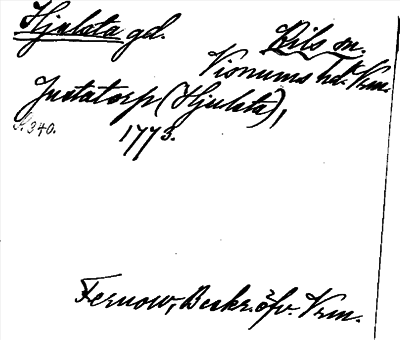 Hjulsta gd.
Bils sn.
Visnums hd. Vrm.
Justatorp (Hjulsta),
S. 340.
1773.
Fernow, Beskr. öfv. Vrm.